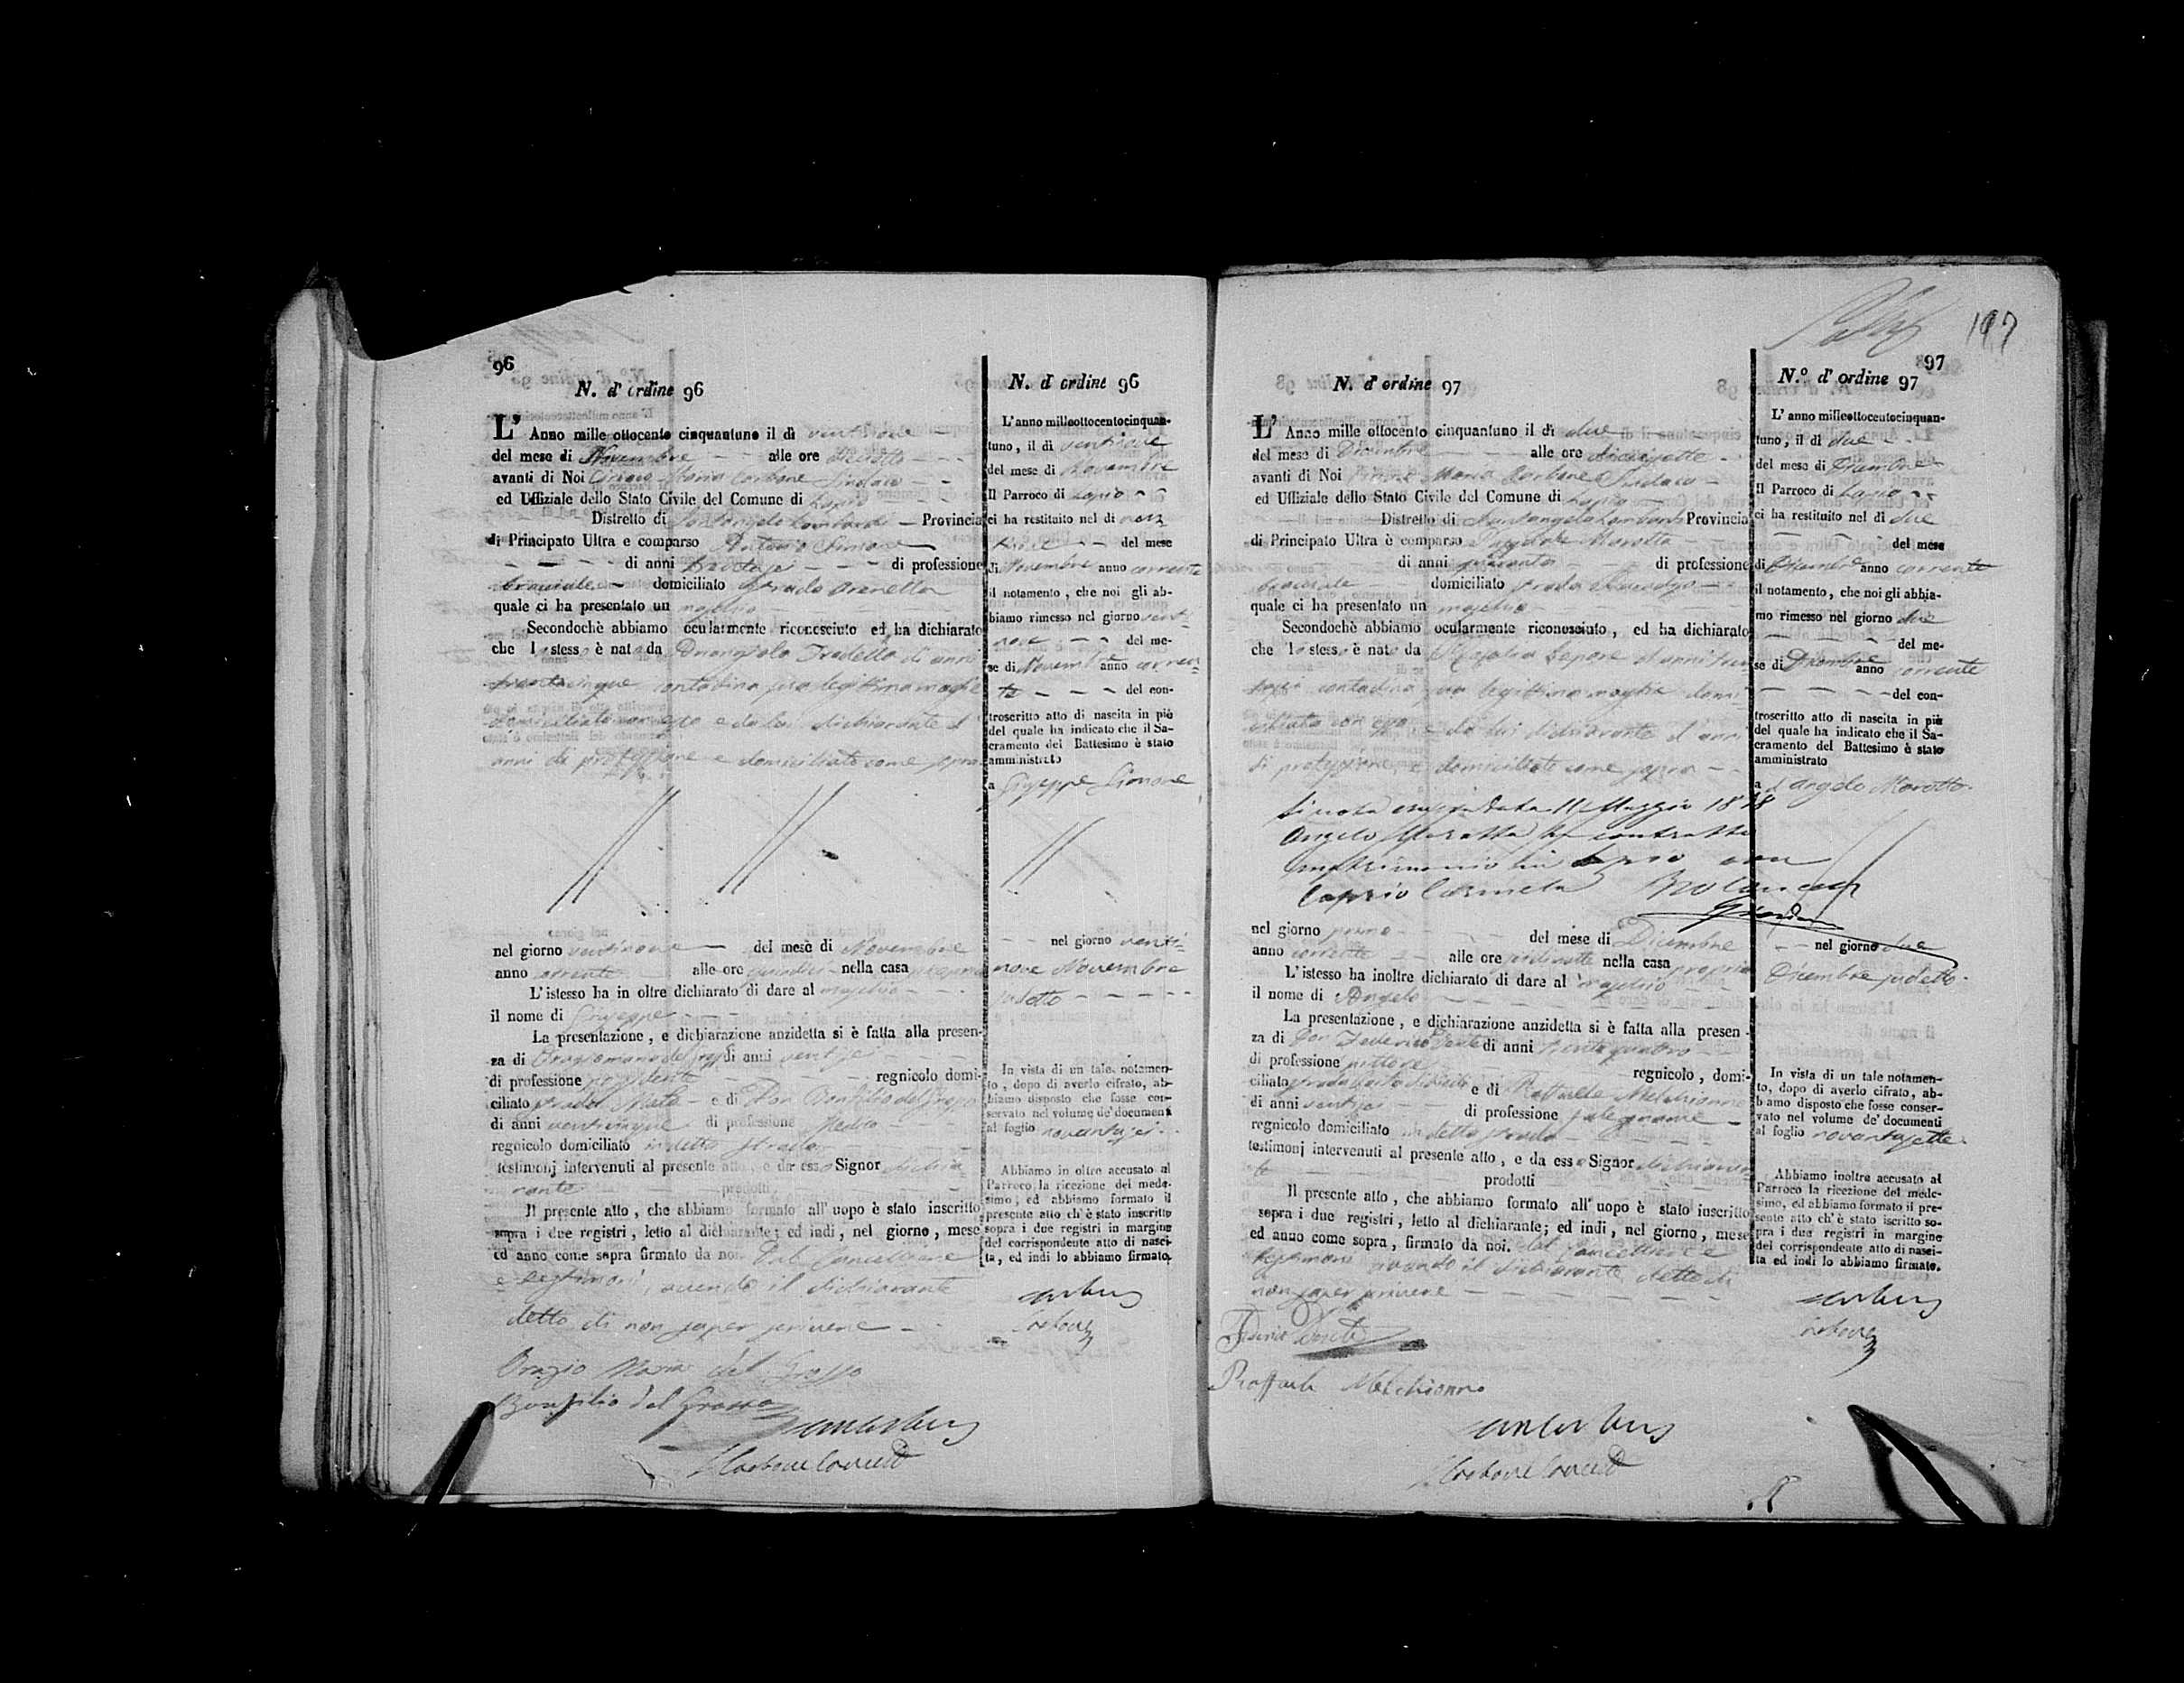 96
N. d' ordine 96
L' Anno mille ottocento cinquantuno il di ventinove
del mese di Novembre alle ore diciotto
avanti di Noi Maria Carbone Sindaco
ed Uffiziale dello Stato Civile del Comune di Lapio
Distretto di Santangelo Lombardi Provincia
di Principato Ultra e comparso Antonio Simone
di anni di professione
bracciale domiciliato strada
quale ci ha presentato un maschio
Secondochè abbiamo ocularmente riconosciuto ed ha dichiarato
che l stess è nat da di anni
trentacinque contadina sua legittima moglie
domiciliata con esso e da lui dichiarante d
anni di professione e domiciliato come sopra
nel giorno ventinove del mese di Novembre
anno corrente alle ore quindici nella casa propria
L' istesso ha in oltre dichiarato di dare al maschio
il nome di Giuseppe
La presentazione, e dichiarazione anzidetta si è fatta alla presen-
za di Orazio Maria del Grosso di anni ventisei
di professione regnicolo domi-
ciliato strada e di Don Bonfilio del Grosso
di anni venticinque di professione Medico
regnicolo domiciliato in detta strada
testimonj intervenuti al presente atto, e da esso Signor dichia
rante prodotti
Il presente atto, che abbiamo formato all' uopo è stato inscritto
sopra i due registri, letto al dichiarante; ed indi, nel giorno, mese
ed anno come sopra firmato da noi Dal Cancelliere
e testimoni, avendo il dichiarante
detto di non saper scrivere
Orazio Maria del Grosso
Bonfilio del Grosso
N. d' ordine 96
L' anno milleottocentocinquan-
tuno, il di ventinove
del mese di Novembre
Il Parroco di Lapio
ci ha restituito nel di ven
tinove del mese
di Novembre anno corrente
il notamento, che noi gli ab-
biamo rimesso nel giorno venti
nove del me-
se di Novembre anno corren
te del con-
troscritto atto di nascita in piè
del quale ha indicato che il Sa-
cramento del Battesimo è stato
amministrato
a Giuseppe Simone
nel giorno venti
nove Novembre
sudetto
In vista di un tale notamen-
to, dopo di averlo cifrato, ab-
biamo disposto che fosse con-
servato nel volume de' documenti
al foglio novantasei
Abbiamo in oltre accusato al
Parroco la ricezione del mede-
simo, ed abbiamo formato il
presente atto ch' è stato inscritto
sopra i due registri in margine
del corrispondente atto di nasci-
ta, ed indi lo abbiamo firmato.
Carbone
197
97
N. d' ordine 97
L' Anno mille ottocento cinquantuno il di due
del mese di Dicembre alle ore diciasette
avanti di Noi Maria Carbone Sindaco
ed Uffiziale dello Stato Civile del Comune di Lapio
Distretto di Santangelo Lombardi Provincia
di Principato Ultra è comparso Marotta
di anni quaranta di professione
bracciale domiciliato strada
quale ci ha presentato un maschio
Secondochè abbiamo ocularmente riconosciuto, ed ha dichiarato
che l stess è nat da Lepore di anni tren
contadina sua legittima moglie domi
ciliata con esso e da lui dichiarante d anni
di professione, e domiciliato come sopra
Si nota in data 11 Maggio 1878
Angelo Marotta ha contratto
matrimonio in Lapio con
Caprio Carmela
nel giorno primo del mese di Dicembre
anno corrente alle ore nella casa propria
L' istesso ha inoltre dichiarato di dare al maschio
il nome di Angelo
La presentazione, e dichiarazione anzidetta si è fatta alla presen-
za di Don Federico di anni trentaquattro
di professione regnicolo, domi-
ciliato strada e di Raffaele Melchionno
di anni ventisei di professione falegname
regnicolo domiciliato in detta strada
testimonj intervenuti al presente atto, e da esso Signor dichiaran
te prodotti
Il presente atto, che abbiamo formato all' uopo è stato inscritto
sopra i due registri, letto al dichiarante; ed indi, nel giorno, mese
ed anno come sopra, firmato da noi. dal Cancelliere e
testimoni avendo il dichiarante detto di
non saper scrivere
Federico
Raffaele Melchionno
N.º d' ordine 97
L' anno milleottocentocinquan-
tuno, il di due
del mese di Dicembre
Il Parroco di Lapio
ci ha restituito nel di due
del mese
di Dicembre anno corrente
il notamento, che noi gli abbia-
mo rimesso nel giorno due
del me-
se di Dicembre anno corrente
del con-
troscritto atto di nascita in piè
del quale ha indicato che il Sa-
cramento del Battesimo è stato
amministrato
a Angelo Marotta
nel giorno due
Dicembre sudetto
In vista di un tale notamen-
to, dopo di averlo cifrato, ab-
biamo disposto che fosse conser-
vato nel volume de' documenti
al foglio novantasette
Abbiamo inoltre accusato al
Parroco la ricezione del mede-
simo, ed abbiamo formato il pre-
sente atto ch' è stato iscritto so-
pra i due registri in margine
del corrispondente atto di nasci-
ta ed indi lo abbiamo firmato.
Carbone